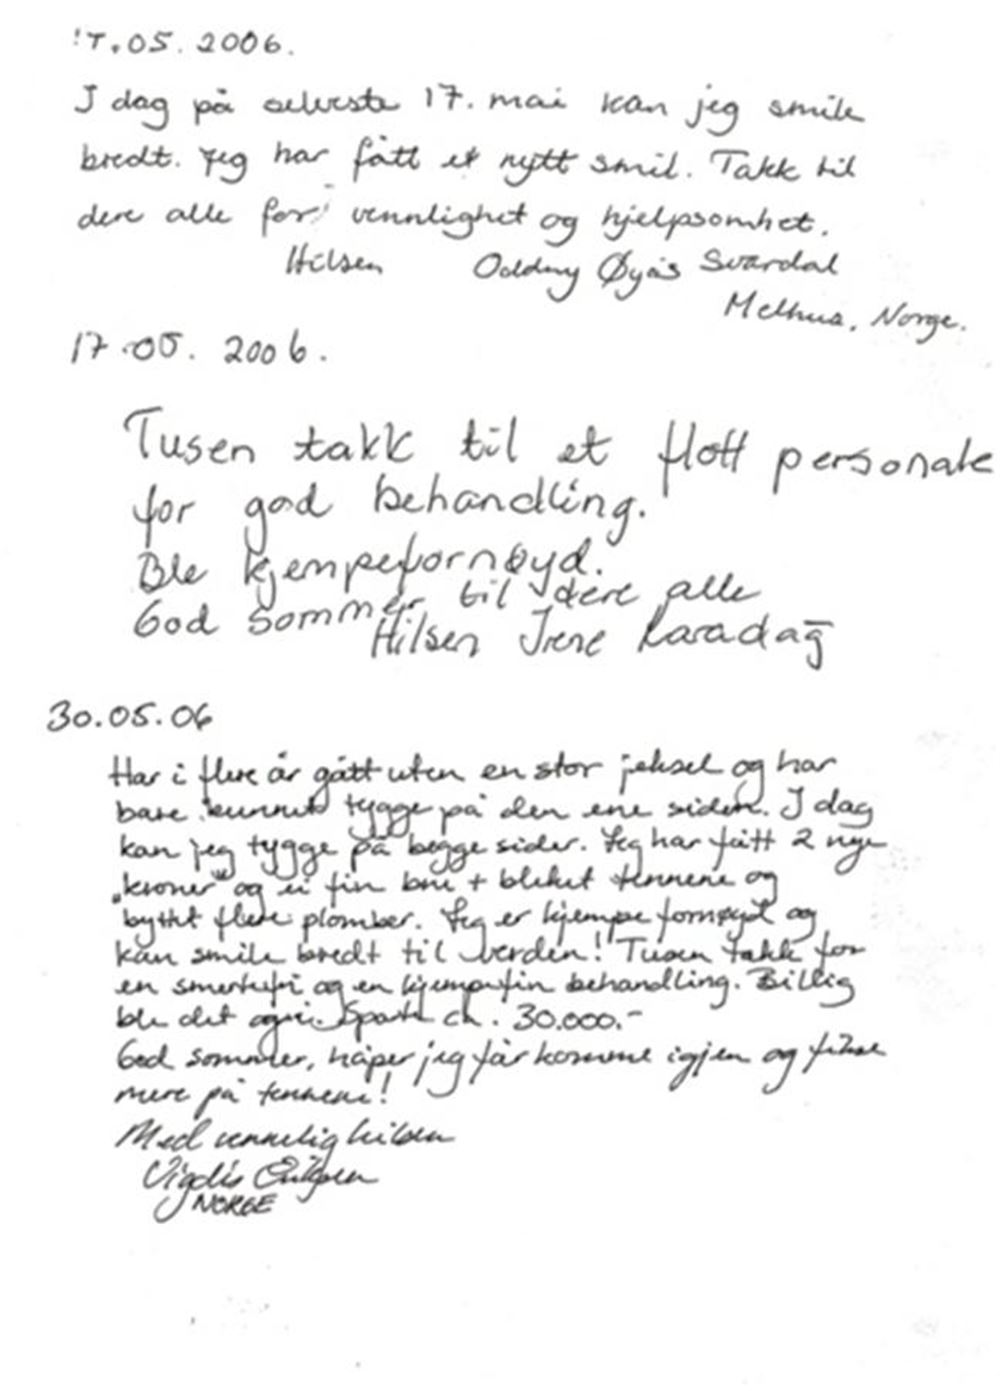 17.05.2006.
I dag på selveste 17. mai kan jeg smile
bredt. Jeg har fått et nytt smil. Takk til
dere alle for vennlighet og hjelpsomhet.
Hilsen Oddny Øyås Svardal
Melhus, Norge.
17.05.2006.
Tusen takk til et flott personale
for god behandling.
Ble kjempefornøyd.
God sommer til dere alle
Hilsen Irene Karadağ
30.05.06
Har i flere år gått uten en stor jeksel og har
bare kunnet tygge på den ene siden. I dag
kan jeg tygge på begge sider. Jeg har fått 2 nye
„kroner" og ei fin bru + bleket tennene og
byttet flere plomber. Jeg er kjempe fornøyd og
kan smile bredt til verden! Tusen takk for
en smertefri og en kjempefin behandling. Billig
ble det også. Sparte ca. 30.000.-
God sommer, håper jeg får komme igjen og fikse
mere på tennene!
Med vennelig hilsen
Vigdis
NORGE